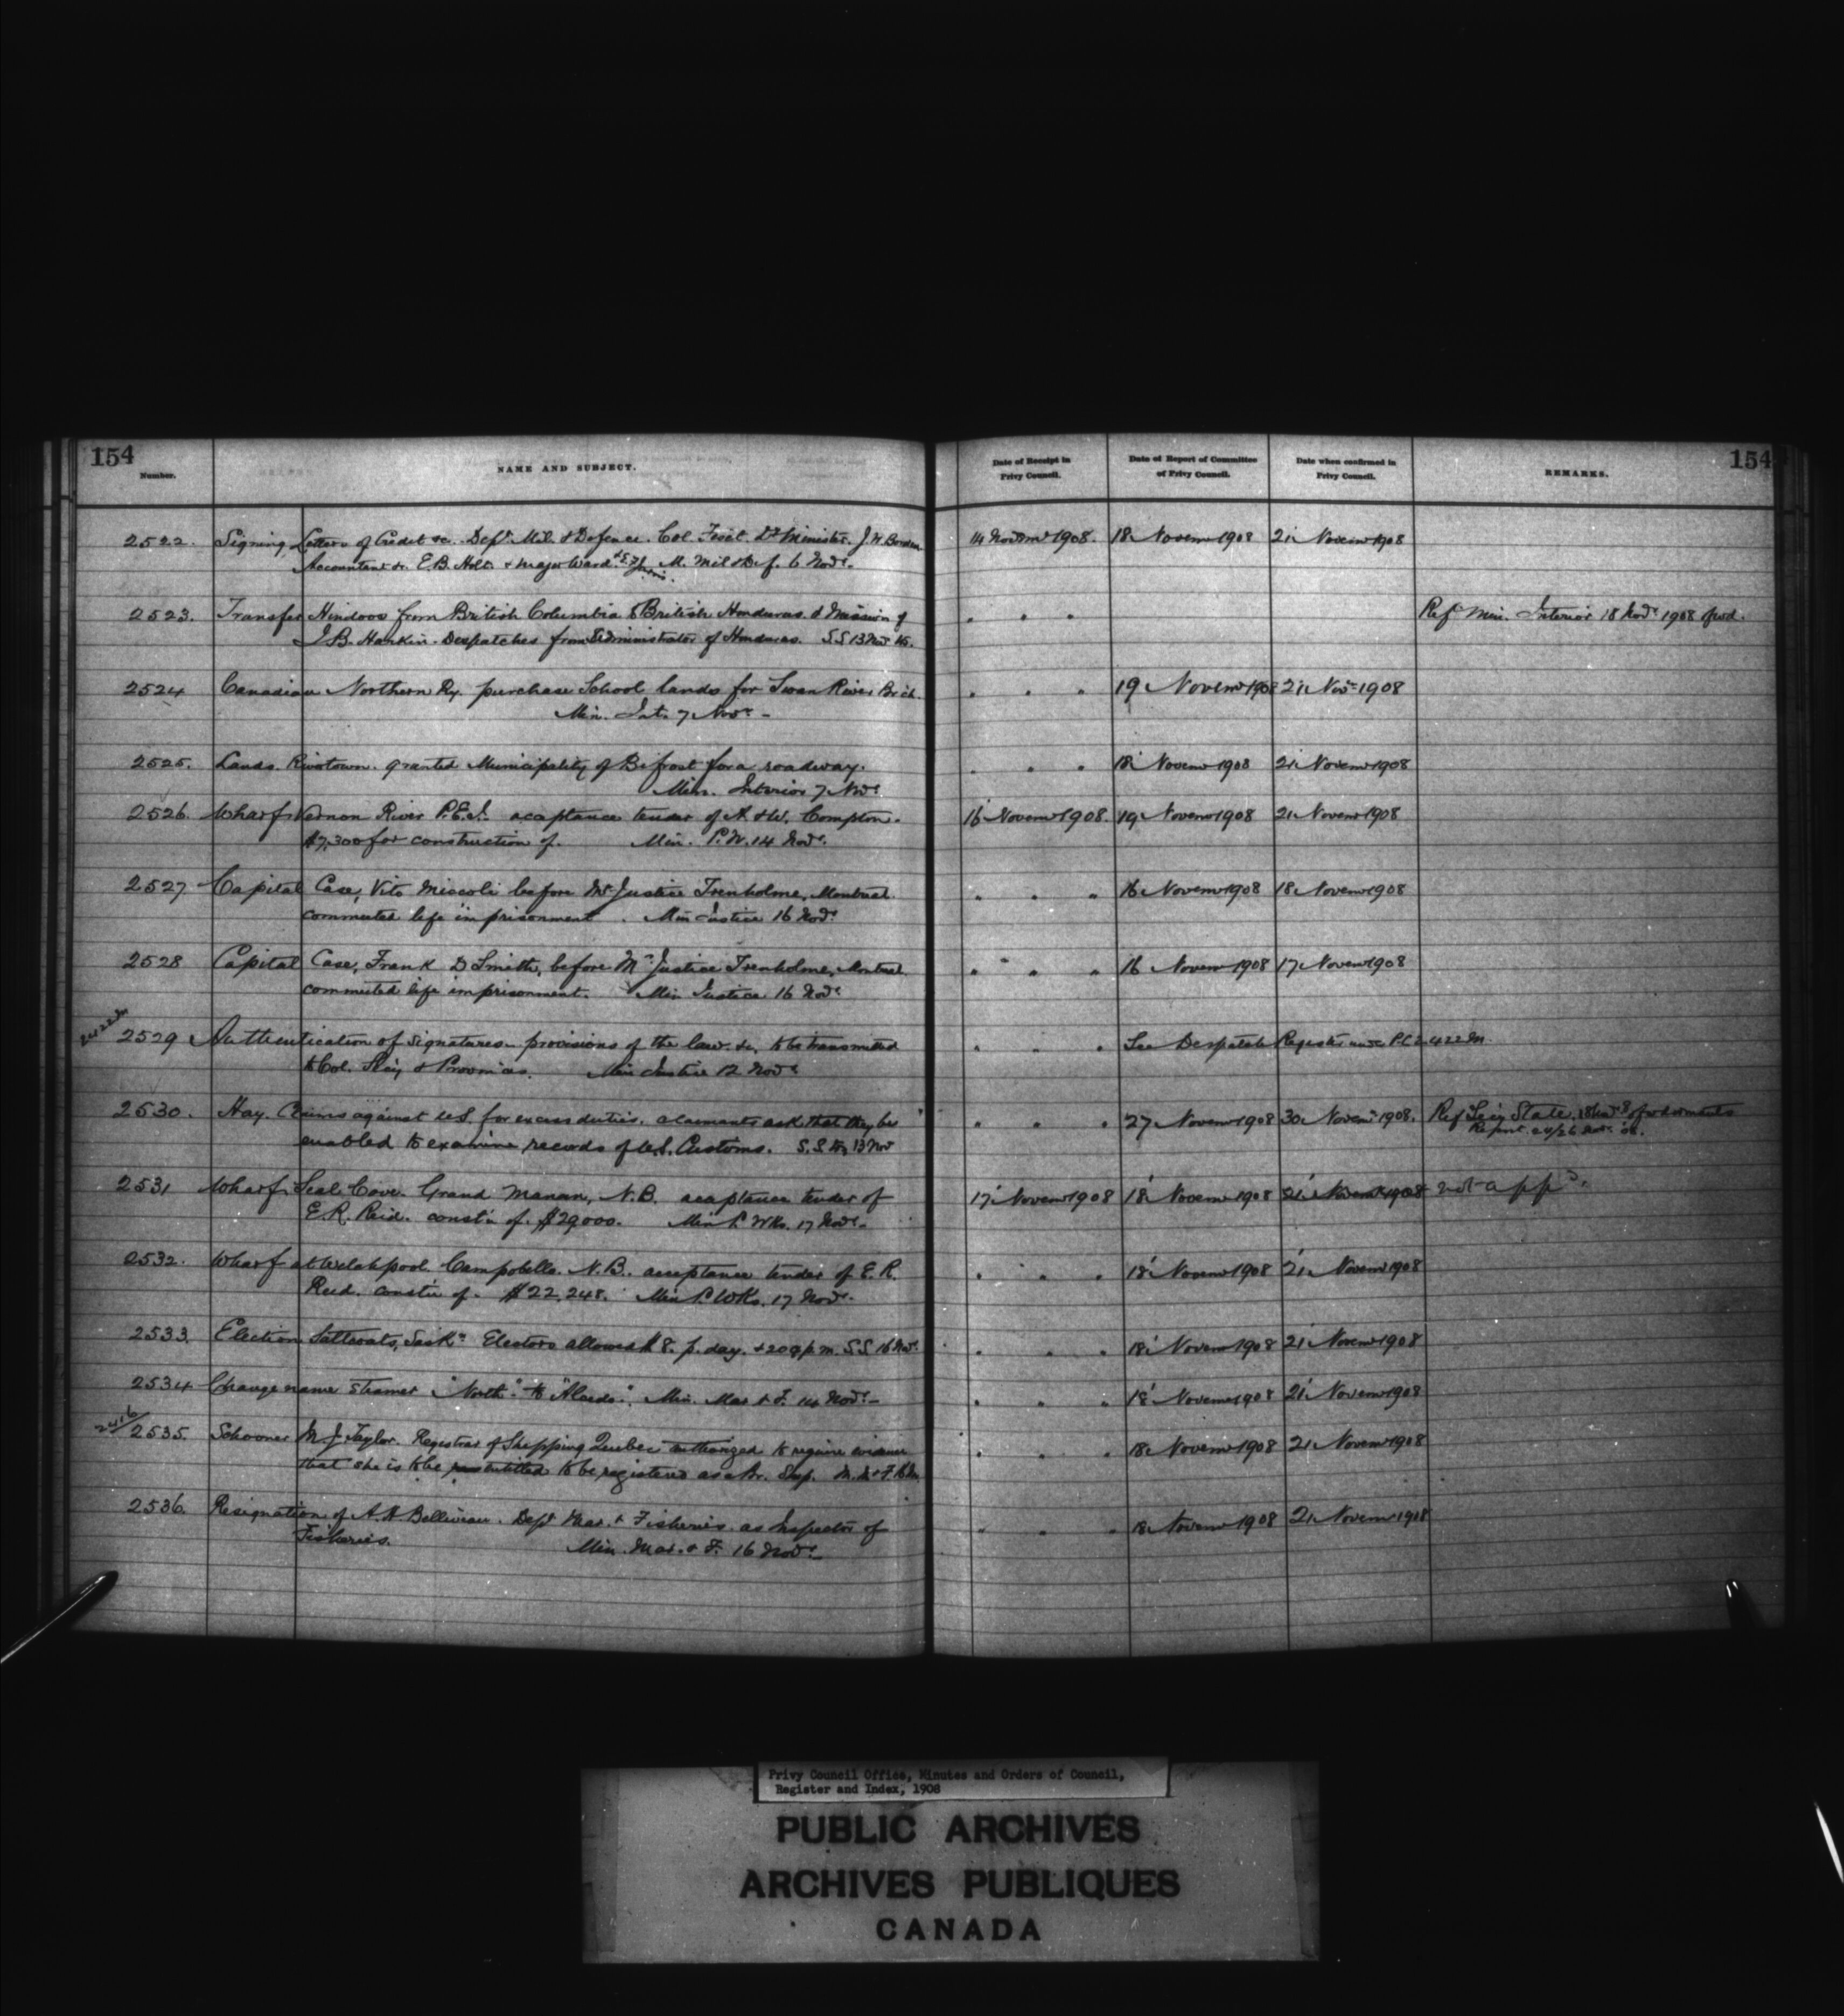 154
Number.
NAME AND SUBJECT.
Date of Receipt in Privy Council.
Date of Report of Committee of Privy Council.
Date when confirmed in Privy Council.
REMARKS.
154
2522. Signing Letters of Credit &c. Dept. Mil. & Defence. Col. Fiset. Dy Minister. J.W. Borden 14 Novemr 1908. 18 Novemr 1908 21 Novemr 1908
Accountant &c. E.B. Holt & Major Ward. M. Mil & Def. 6 Novr.
2523. Transfer Hindoos from British Columbia to British Honduras & Mission of " " " Refd Min. Interior 18 Novr 1908
J.B. Harkin. Despatches from Administrator of Honduras. S.S 13 Nov
2524 Canadian Northern Ry. purchase School lands for Swan River Brch. " " " 19 Novemr 1908 21 Novr 1908
Min. Int. 7 Novr -
2525. Lands. Rivertown. granted Municipality of Bifrost for a roadway. " " " 18 Novemr 1908 21 Novemr 1908
Min. Interior 7 Novr
2526. Wharf Vernon River P.E.I. acceptance tender of A. & W. Compton. 16 Novemr 1908. 19 Novemr 1908 21 Novemr 1908
$7,300 for construction of. Min. P.W. 14 Novr.
2527 Capital Case, Vito Miscoli before Mr Justice Trenholme, Montreal " " " 16 Novemr 1908 18 Novemr 1908
commuted life imprisonment. Min Justice 16 Novr
2528 Capital Case, Frank D Smith, before Mr Justice Trenholme, Montreal " " " 16 Novemr 1908 17 Novemr 1908
commuted life imprisonment. Min Justice 16 Novr
2422M 2529 Authentication of Signatures - provisions of the law &c, to be transmitted " " " See Despatch Register under P.C. 2422 M.
to Col. Secy & Provinces. Min Justice 12 Novr
2530. Hay. Claims against U.S. for excess duties. claimants ask that they be " " " 27 Novemr 1908 30 Novemr 1908. Refd Secy State. 18 Novr 8
enabled to examine records of U.S. Customs. S.S 13 Nov Report 26 Novr 08.
2531 Wharf Seal Cove. Grand Manan, N.B. acceptance tender of 17 Novemr 1908 18 Novemr 1908 21 Novemr 1908 not appd.
E.R. Reid. constn of. $29,000. Min P. Wks. 17 Novr -
2532. Wharf at Welshpool Campobello. N.B. acceptance tender of E.R. " " " 18 Novemr 1908 21 Novemr 1908
Reid. constn of. $22,248. Min P. Wks. 17 Novr.
2533. Election Saltcoats, Saskn Electors allowed $8. p. day. S.S 16 Novr " " " 18 Novemr 1908 21 Novemr 1908
2534 Change name Steamer "North" to Min. Mar & F. 14 Novr - " " " 18 Novemr 1908 21 Novemr 1908
2416/ 2535. Schooner M.J. Taylor. Registrar of Shipping Quebec authorized to require evidence " " " 18 Novemr 1908 21 Novemr 1908
that she is to be entitled to be registered as a Br. Ship. M. M & F
2536. Resignation of A.H Belliveau. Dept Mar. & Fisheries. as Inspector of " " " 18 Novemr 1908 21 Novemr 1908
Fisheries. Min. Mar. & F. 16 Novr -
Privy Council Office, Minutes and Orders of Council,
Register and Index, 1908
PUBLIC ARCHIVES
ARCHIVES PUBLIQUES
CANADA